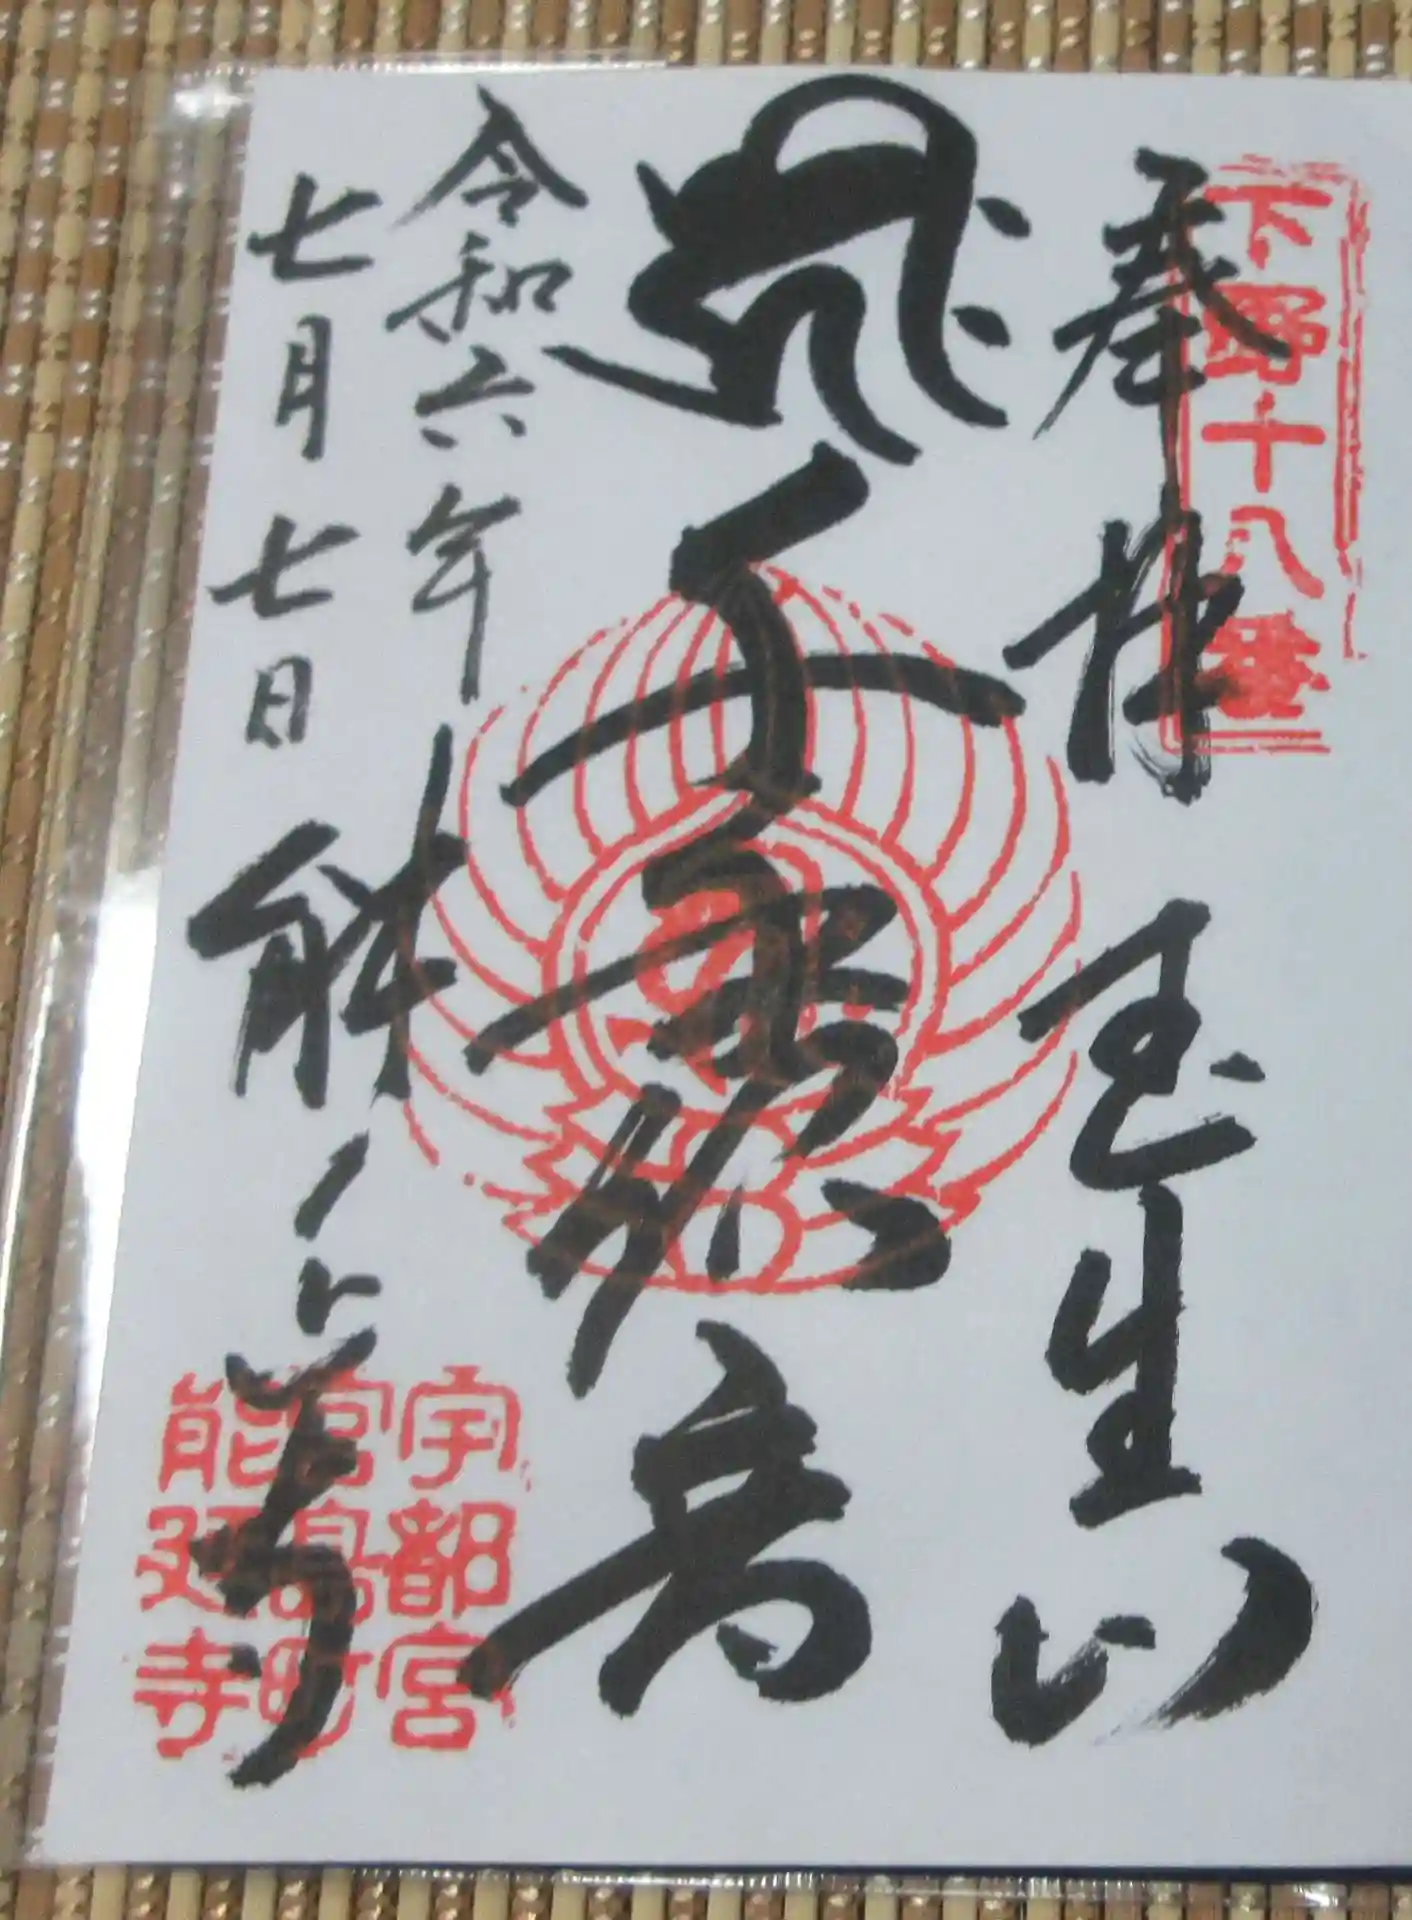 下野十八番
奉拝 玉生山
千手観音
令和六年
七月七日
能延寺
宇都宮
宮島町
能延寺